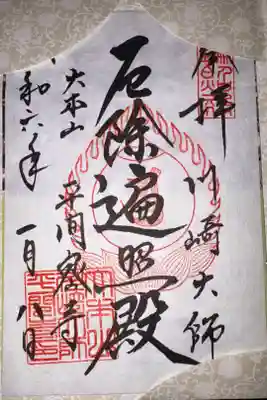 奉拝
川崎大師
厄除遍照殿
大本山
平間寺
令和六年
一月八日